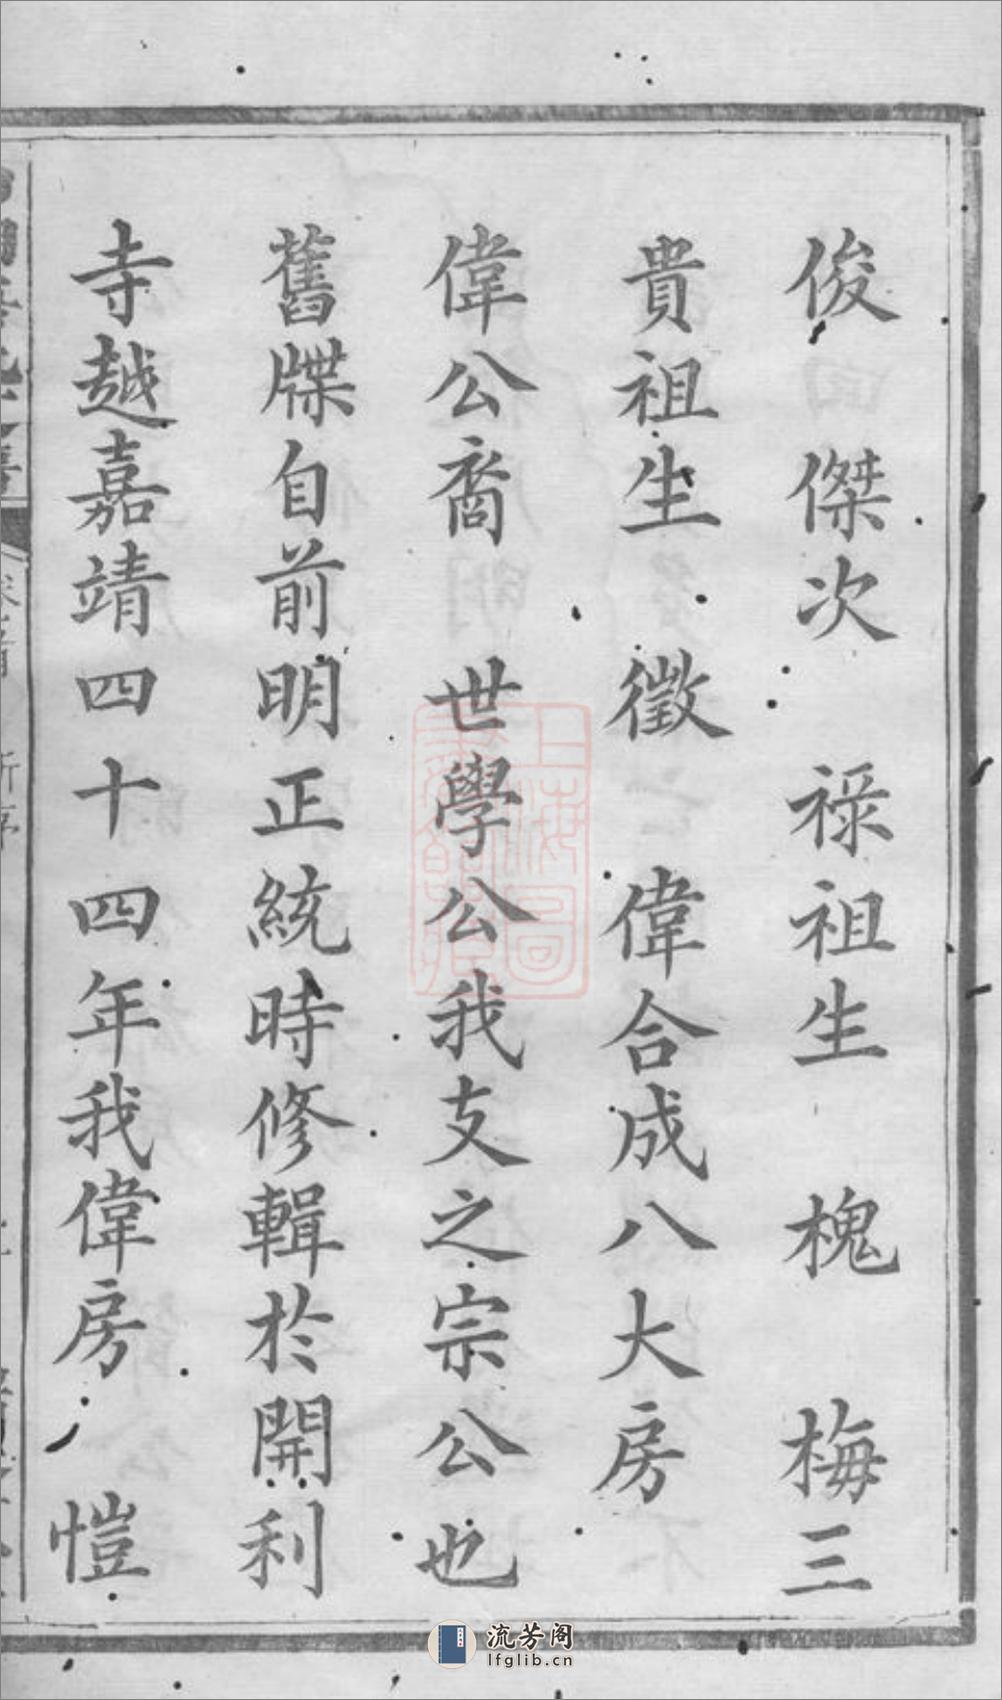 俊 傑次 祿祖生 槐 梅三
貴祖生 徵 偉合成八大房
偉公裔 世學公我支之宗公也
舊牒自前明正統時修輯於開利
寺越嘉靖四十四年我偉房 愷
新序
流芳阁
lfglib.cn